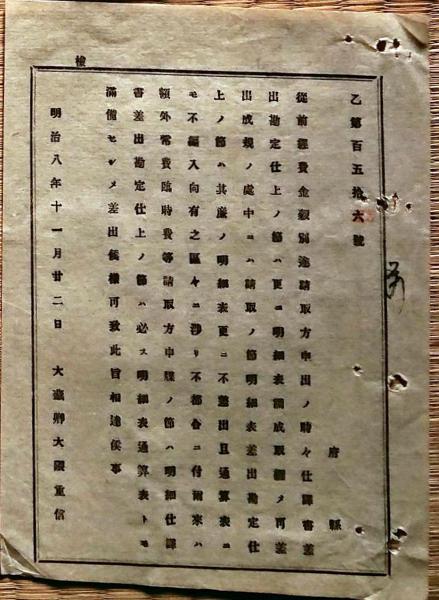 乙第百五拾六號
府縣
從前經費金穀別途請取方申出ノ時々仕譯書差
出勘定仕上ノ節ハ更ニ明細表調成取纒メ可差
出成規ノ處中ニハ請取ノ節明細表差出勘定仕
上ノ節ハ其廉ノ明細表更ニ不差出且通算表ニ
モ不編入向有之區々ニ渉リ不都合ニ付爾來ハ
額外常費臨時費等請取方申牒ノ節ハ明細仕譯
書差出勘定仕上ノ節ハ必ス明細表通算表トモ
滿備セシメ差出候樣可致此旨相達候事
明治八年十一月廿二日
大藏卿大隈重信